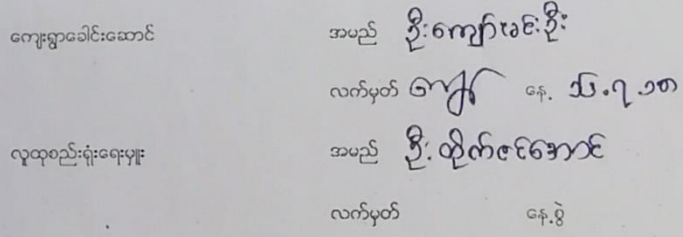 ကျေးရွာခေါင်းဆောင် အမည် ဦးကျော်ခင်ဦး
လက်မှတ် ကျော် နေ့ ၁၆.၇.၁၈
လူထုစည်းရုံးရေးမှူး အမည် ဦးထိုက်ဇင်အောင်
လက်မှတ် နေ့စွဲ